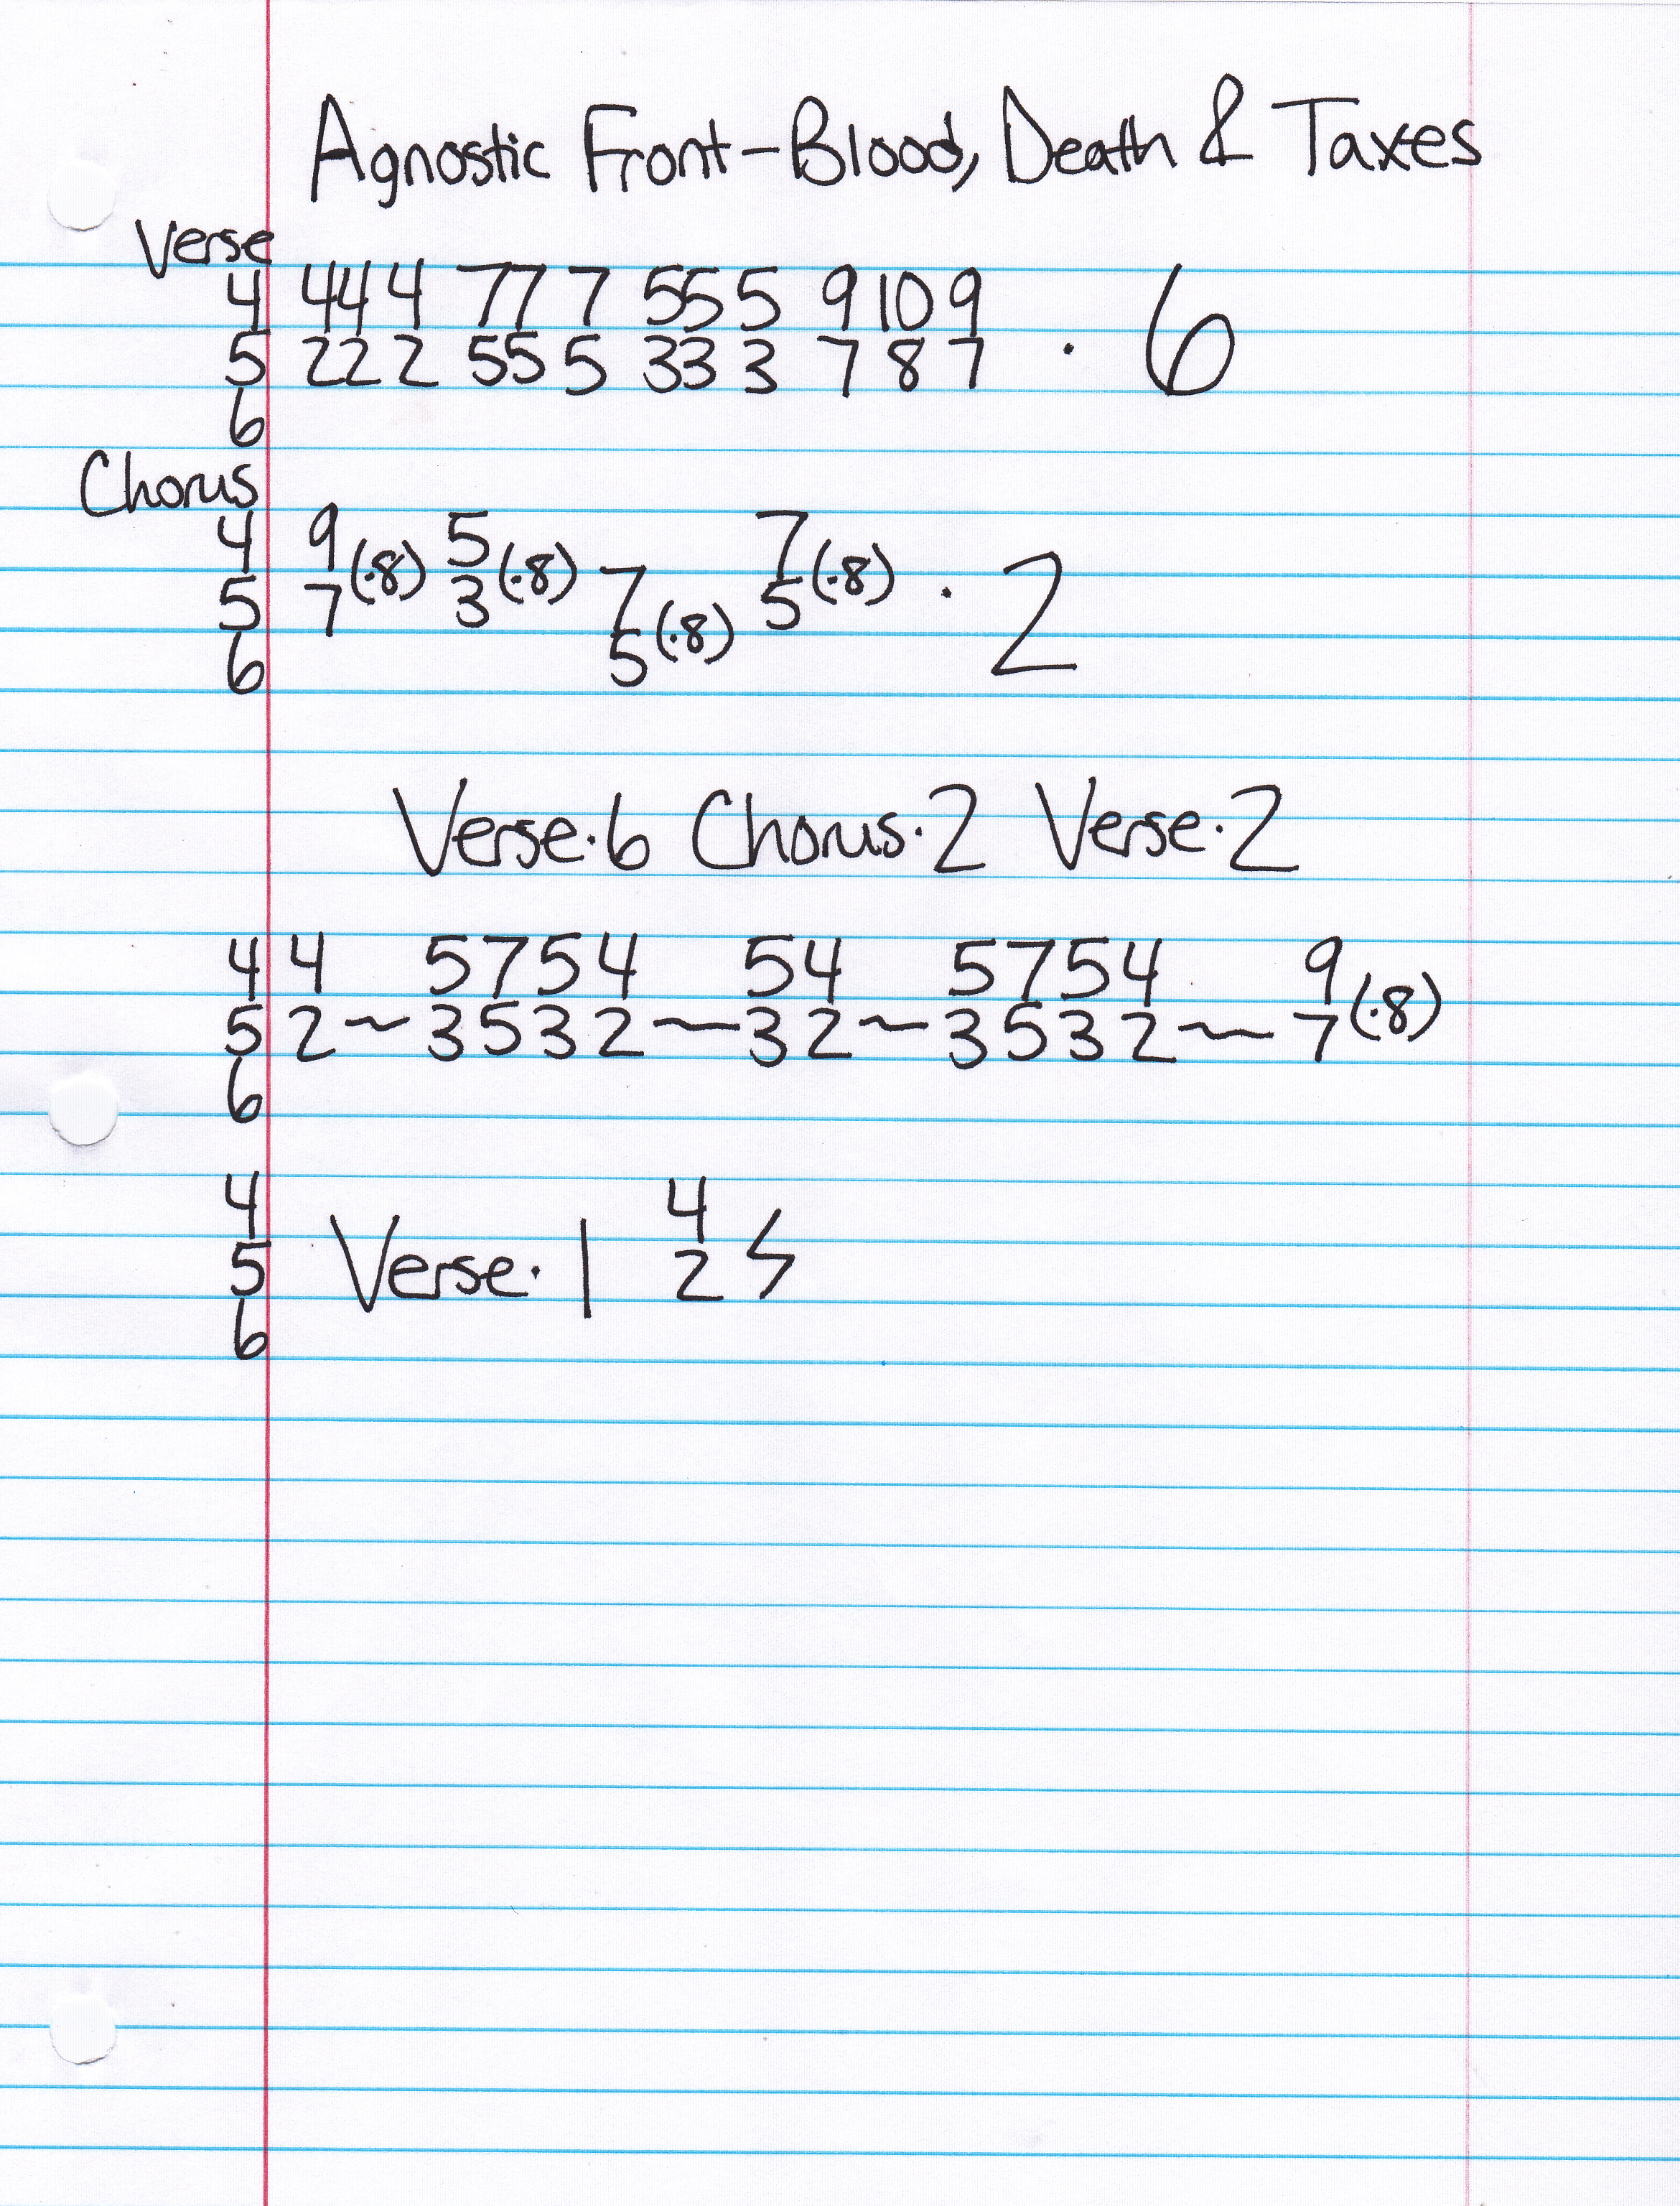 Agnostic Front-Blood, Death & Taxes
Verse
4 444 777 555 9109
5 222 555 333 787 · 6
6
Chorus
4 9 5 7
5 7 (·8) 3 (·8) 7 5 (·8) · 2
6 5 (·8)
Verse·6 Chorus·2 Verse·2
4 4 5754 54 5754 9
5 2 ~ 3532 ~ 32 ~ 3532 ~ 7 (·8)
6
4 4
5 Verse·1 2 ϟ
6